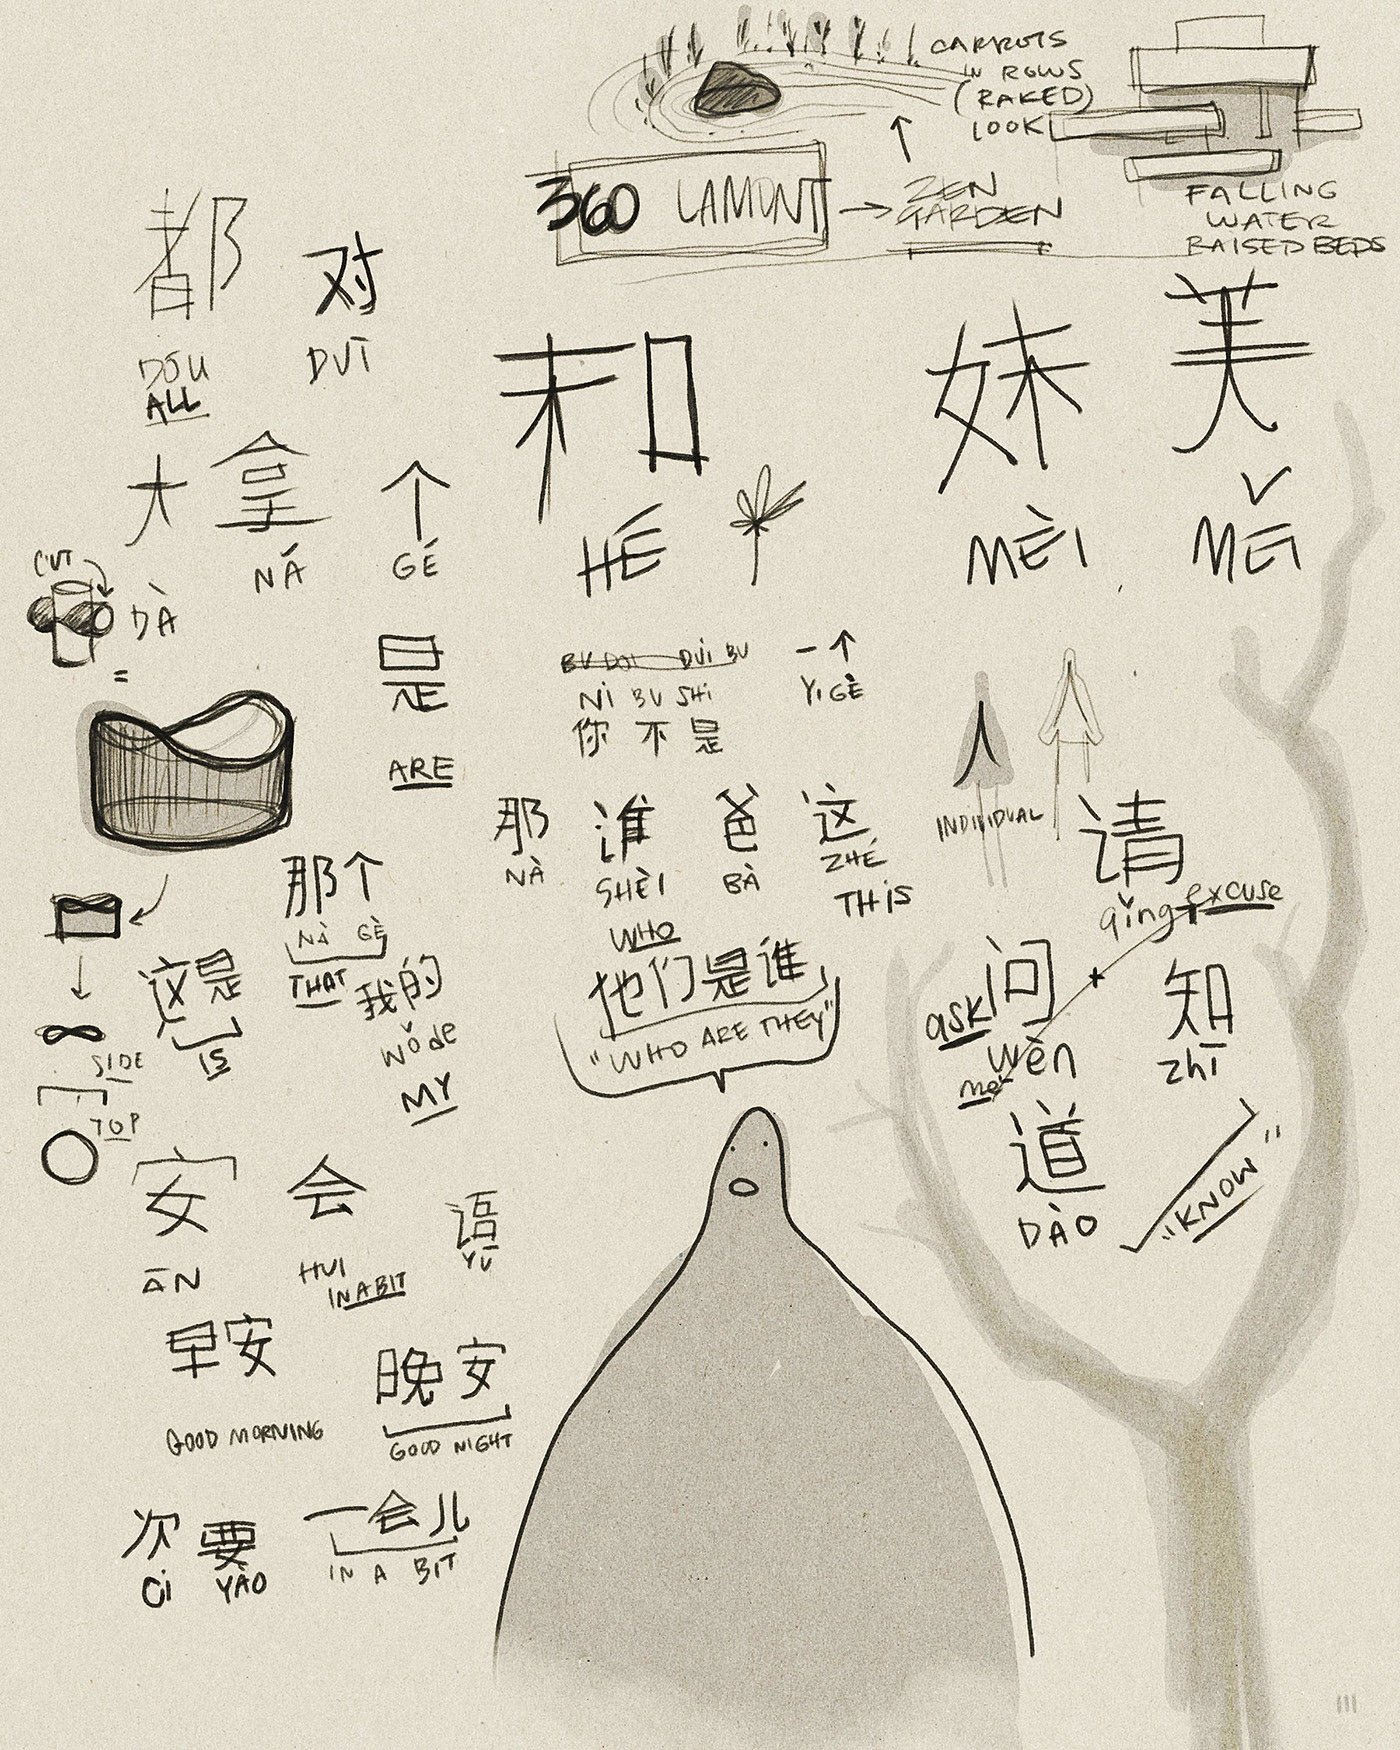 CARROTS
IN ROWS
(RAKED)
LOOK
360 LAMONT
ZEN
GARDEN
FALLING
WATER
RAISED BEDS
都 对
DŌU DUÌ
ALL
和
HÉ
妹 美
MÈI MĚI
大 拿 个
DÀ NÁ GÉ
CUT
=
是
ARE
DUÌ BU
NI BU SHI
你 不 是
一个
YI GÈ
INDIVIDUAL
那 谁 爸 这
NÀ SHÈI BÀ ZHÉ
WHO THIS
请
qǐng excuse
那个
NÀ GÈ
THAT
这是
IS
我的
wǒ de
MY
他们是谁
"WHO ARE THEY"
问
ask
wèn
me
知
zhī
道
DÀO
"KNOW"
SIDE
TOP
安 会 语
ĀN HUI YŬ
IN A BIT
早安
GOOD MORNING
晚安
GOOD NIGHT
次 要
Ci YÀO
一会儿
IN A BIT
111